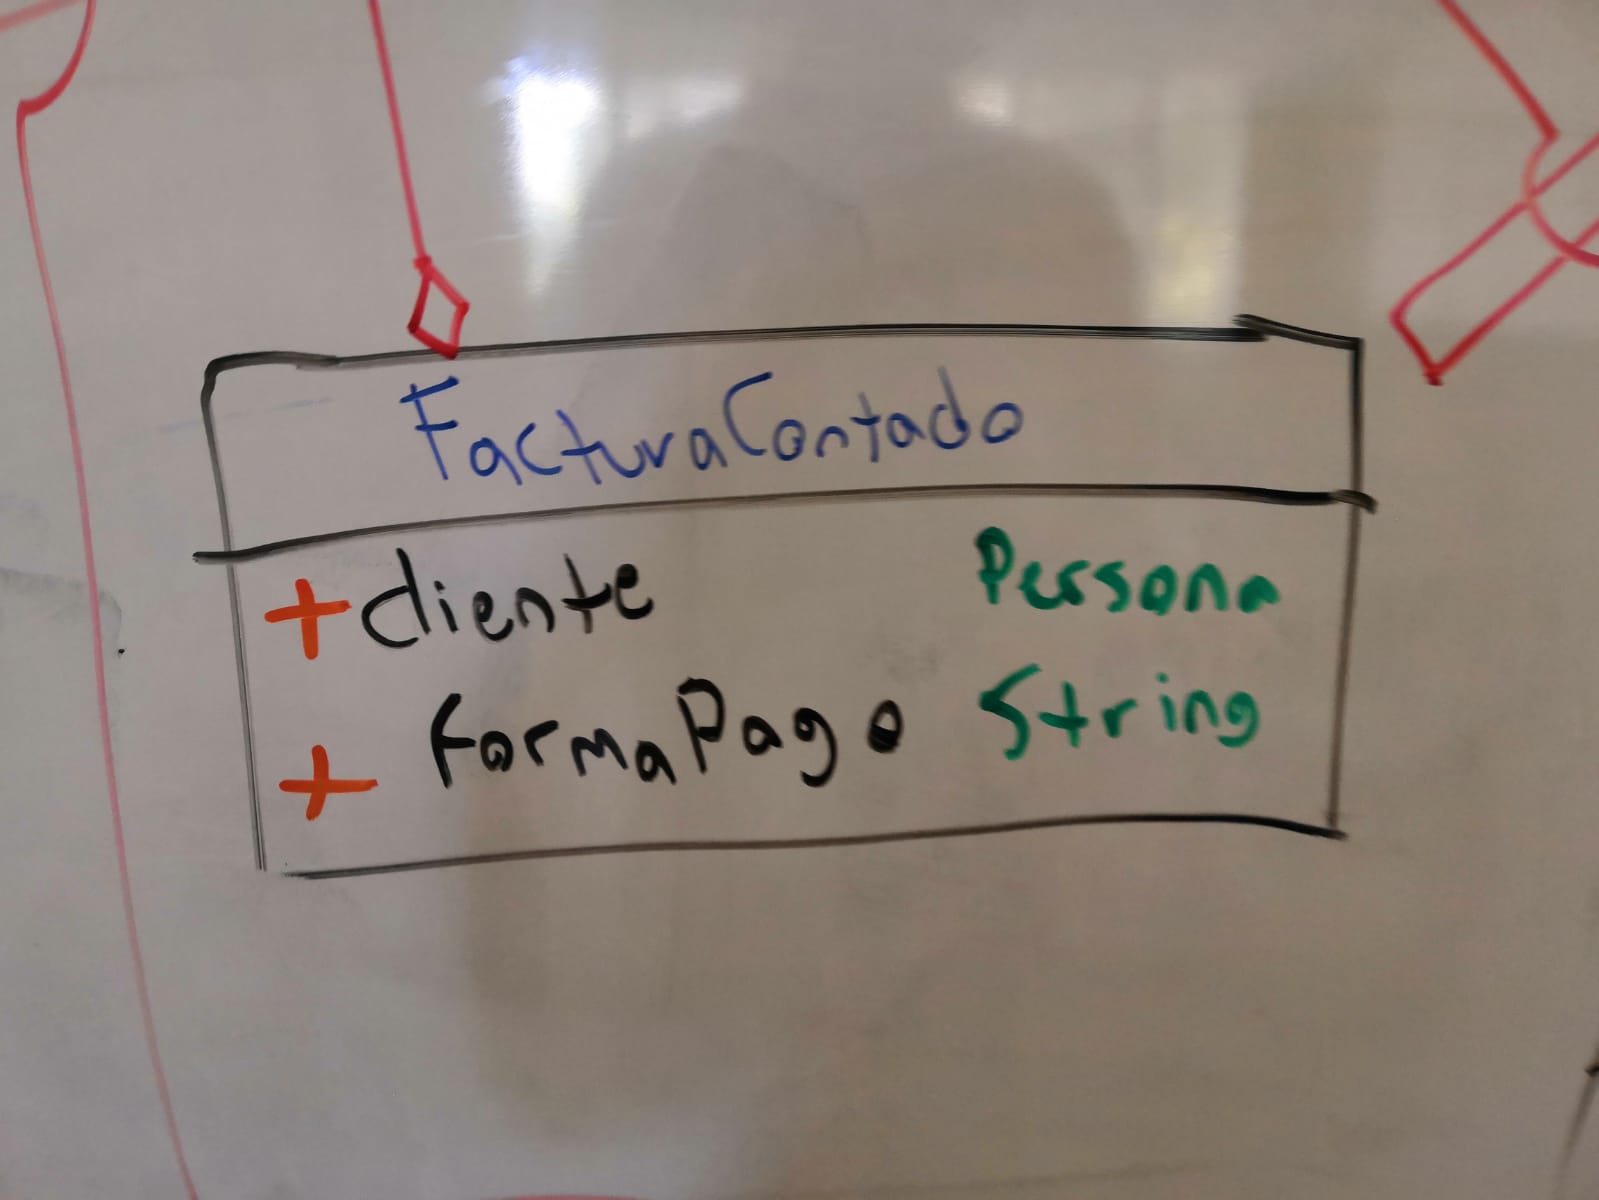 FacturaContado
+ cliente Persona
+ formaPago String